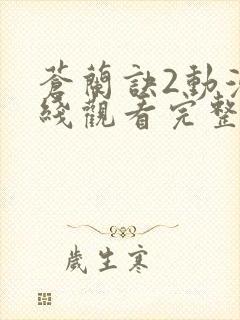 蒼蘭訣2動
綫觀看完整
歲生寒